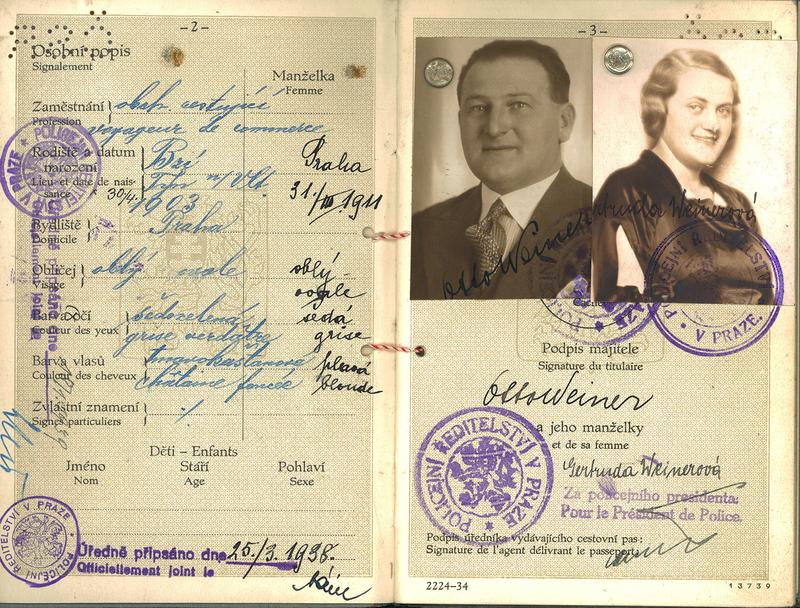 – 2 –
Osobní popis
Signalement
Manželka
Femme
Zaměstnání
Profession
obch. cestující
voyageur de commerce
Rodiště a datum
narození
Lieu et date de nais-
sance
30/4.
1903
Praha
31/III 1911
Bydliště
Domicile
Praha
Obličej
Visage
oblý ovale
oblý
ovale
Barva očí
Couleur des yeux
šedozelená
grise verdâtre
šedá
grise
Barva vlasů
Couleur des cheveux
tmavokaštanová
châtaine foncée
plavá
blonde
Zvláštní znamení
Signes particuliers
Děti – Enfants
Jméno
Nom
Stáří
Age
Pohlaví
Sexe
POLICEJNÍ ŘEDITELSTVÍ V PRAZE
Úředně připsáno dne 25/3. 1938.
Officiellement joint le
– 3 –
Otto Weiner
Gertruda Weinerová
POLICEJNÍ ŘEDITELSTVÍ V PRAZE
Podpis majitele
Signature du titulaire
Otto Weiner
a jeho manželky
et de sa femme
Gertruda Weinerová
POLICEJNÍ ŘEDITELSTVÍ V PRAZE
Za policejního presidenta:
Pour le Président de Police.
Podpis úředníka vydávajícího cestovní pas:
Signature de l'agent délivrant le passeport
2224–34
13739